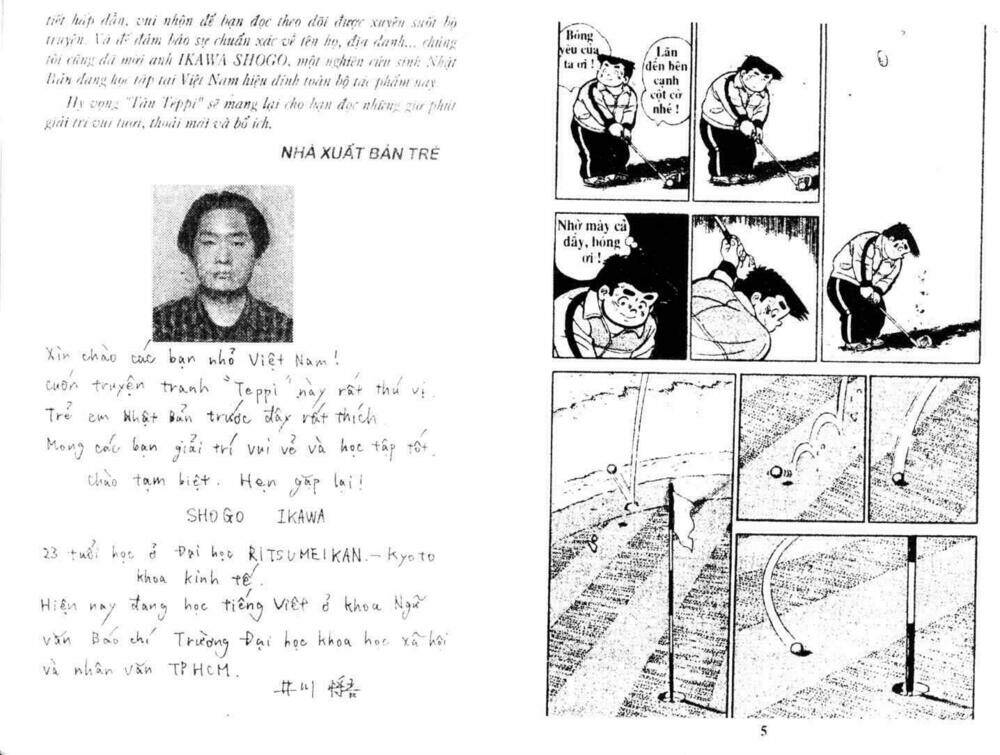 tiết hấp dẫn, vui nhộn để bạn đọc theo dõi được xuyên suốt bộ
truyện. Và để đảm bảo sự chuẩn xác về tên họ, địa danh... chúng
tôi cũng đã mời anh IKAWA SHOGO, một nghiên cứu sinh Nhật
Bản đang học tập tại Việt Nam hiệu đính toàn bộ tác phẩm này.
Hy vọng "Tân Teppi" sẽ mang lại cho bạn đọc những giờ phút
giải trí vui tươi, thoải mái và bổ ích.
NHÀ XUẤT BẢN TRẺ
Xin chào các bạn nhỏ Việt Nam!
Cuốn truyện tranh "Teppi" này rất thú vị.
Trẻ em Nhật Bản trước đây rất thích.
Mong các bạn giải trí vui vẻ và học tập tốt.
Chào tạm biệt. Hẹn gặp lại!
SHOGO IKAWA
23 tuổi học ở Đại học RITSUMEIKAN - Kyoto
khoa kinh tế.
Hiện nay đang học tiếng Việt ở khoa Ngữ
văn Báo chí Trường Đại học khoa học xã hội
và nhân văn TPHCM.
井川
Bóng
yêu của
ta ơi !
Lăn
đến bên
cạnh
cột cờ
nhé !
Nhờ mày cả
đấy, bóng
ơi !
5